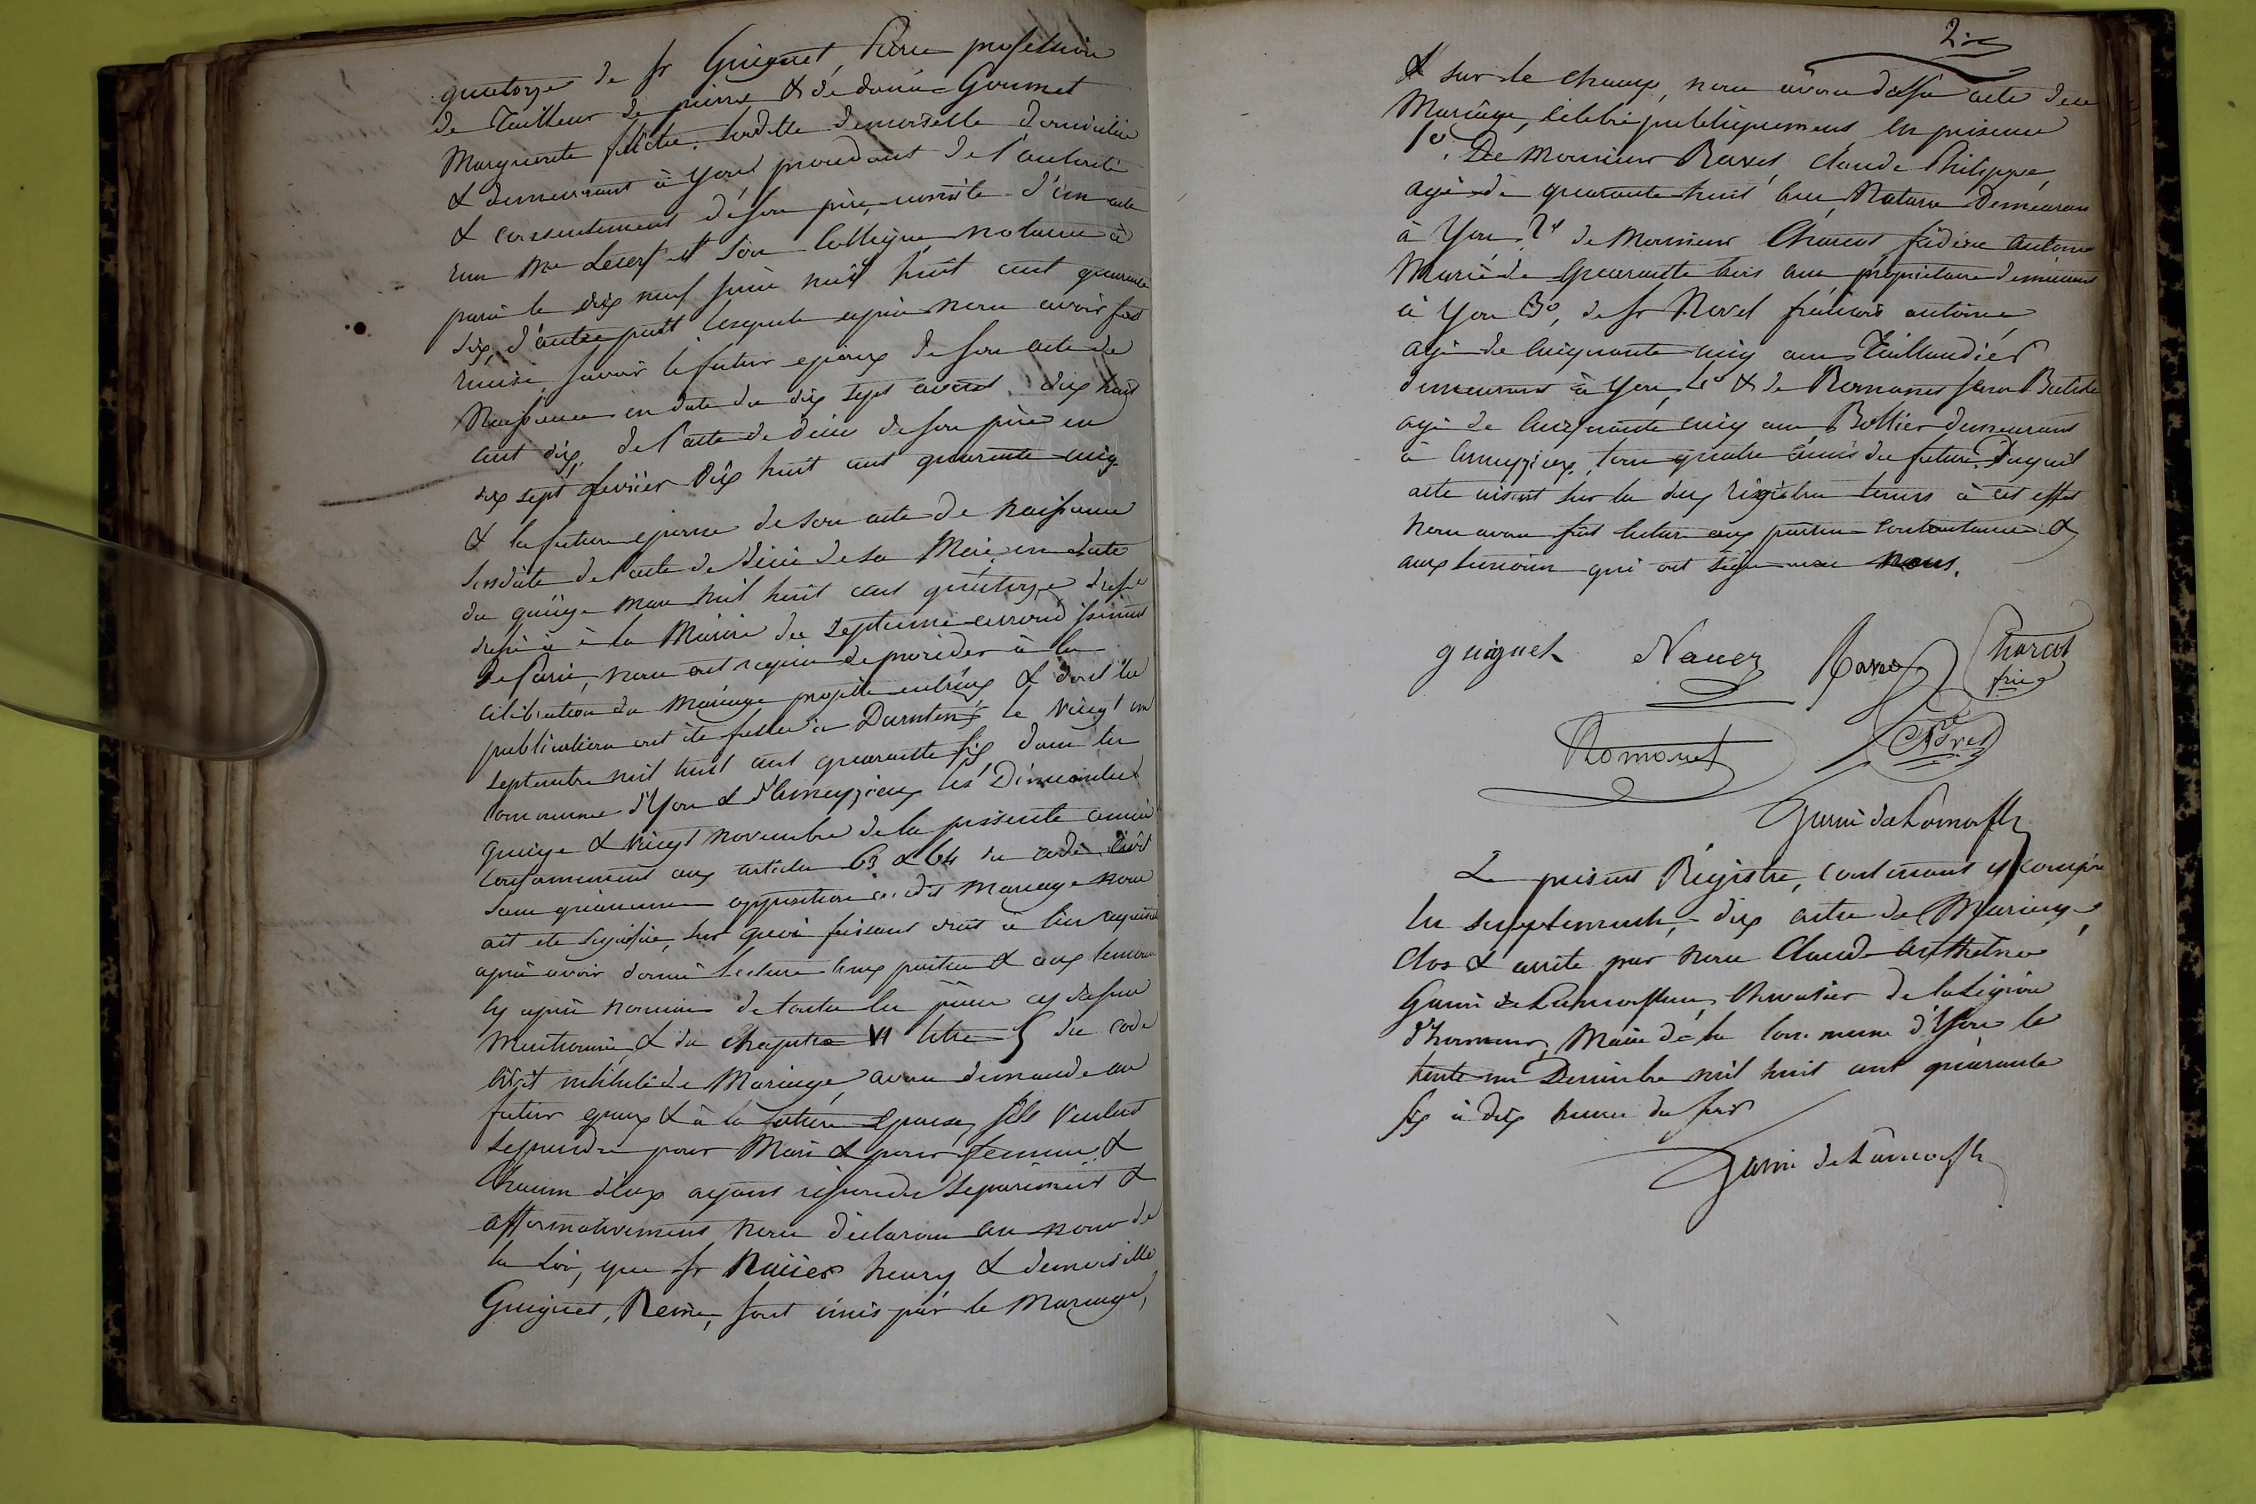 quatorze de sr Guiguet, Pierre profession
de Tailleur de pierre & de dame Gourmet
Marguerite félicité. Ladite demoiselle domiciliée
& demeurant à Yon procedant de l'autorité
& consentement de son père, résulte d'un acte
Me Lecerf et son Collègue notaire à
paris le dix neuf juin mil huit cent quarante
six, d'autre part lesquels après nous avoir fait
remise savoir le futur epoux de son acte de
Naissance en date du dix sept avril dix huit
cent dix, de l'acte de décès de son père en
dix sept fevrier dix huit cent quarante cinq
& la future epouse de son acte de naissance
de l'acte de décès de sa Mère en date
du quinze mars mil huit cent quatorze
à la Mairie du septieme arrondissement
de Paris, nous ont requis de proceder à la
célébration du Mariage projetté entr'eux & dont les
publications ont été faites à le vingt un
septembre mil huit cent quarante six dans les
communes d'Yon & d'Ameyzieux les Dimanches
quinze & vingt novembre de la présente année
conformement aux articles 63 & 64 du code civil
sans qu'aucune opposition audit Mariage nous
ait été signifiée, sur quoi faisant droit à leur requisition
après avoir donné lecture aux parties & aux temoins
cy après nommés de toutes les pièces cy dessus
mentionnées & du Chapitre VI titre 5 du code
civil intitulé du Mariage, avons demandé au
futur epoux & à la future Epouse, s'ils veulent
se prendre pour Mari & pour femme, &
Chacun d'eux ayant répondu separement &
affirmativement nous déclarons au nom de
la Loi, que sr Nauer henry & demoiselle
Guiguet, Reine, sont unis par le Mariage,
& sur le champ, nous avons dressé acte du
Mariage, célébré publiquement en présence
1o. De Monsieur Ravet, Claude Philippe,
agé de quarante huit ans, Notaire Demeurant
à Yon 2o de Monsieur Charcot fréderic antoine
Marie de quarante trois ans propriétaire demeurant
à Yon 3o, de sr Nevel françois antoine
agé de cinquante cinq ans Taillandier
demeurant à Yon, 4o & de Romanet Jean Batiste
agé de cinquante cinq ans Bottier demeurant
à Ameyzieux, tous quatre amis des futurs. Duquel
acte inscrit sur les deux registres tenus à cet effet
nous avons fait lecture aux parties contractantes &
aux temoins qui ont signé avec nous.
guiguet Nauer Ravet Charcot
Romanet
Le présent Régistre, contenant y compris
les supplements, dix actes de Mariage,
clos & arrêté par nous Claude Anthelme
Chevalier de la Légion
d'honneur, Maire de la Commune d'Yon le
trente un Décembre mil huit cent quarante
six à dix heures du soir